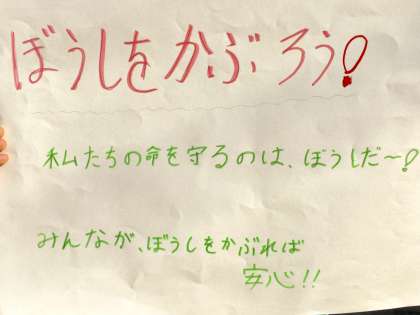 ぼうしをかぶろう!
私たちの命を守るのは、ぼうしだ～!
みんなが、ぼうしをかぶれば
安心!!